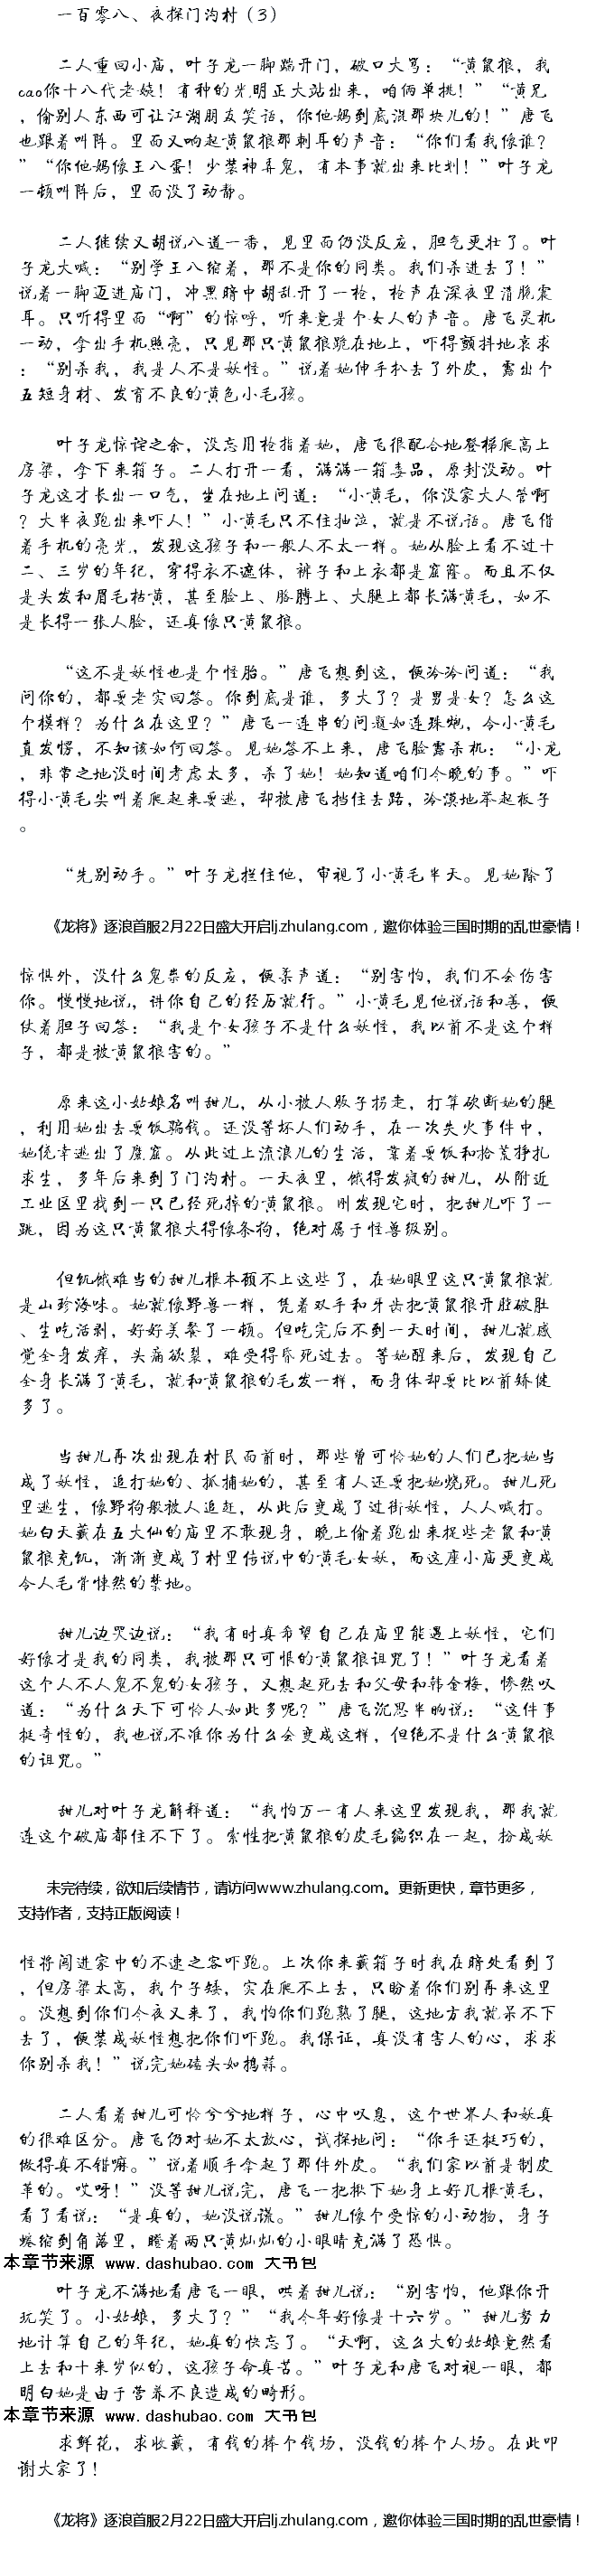 一百零八、夜探门沟村（3）
二人重回小庙，叶子龙一脚踹开门，破口大骂：“黄鼠狼，我
cao你十八代老娆！有种的光明正大站出来，咱俩单挑！”“黄兄
，偷别人东西可让江湖朋友笑话，你他妈到底混那块儿的！”唐飞
也跟着叫阵。里面又响起黄鼠狼那刺耳的声音：“你们看我像谁？
”“你他妈像王八蛋！少装神弄鬼，有本事就出来比划！”叶子龙
一顿叫阵后，里面没了动静。
二人继续又胡说八道一番，见里面仍没反应，胆气更壮了。叶
子龙大喊：“别学王八缩着，那不是你的同类。我们杀进去了！”
说着一脚迈进庙门，冲黑暗中胡乱开了一枪，枪声在深夜里清脆震
耳。只听得里面“啊”的惊呼，听来竟是个女人的声音。唐飞灵机
一动，拿出手机照亮，只见那只黄鼠狼跪在地上，吓得颤抖地哀求
：“别杀我，我是人不是妖怪。”说着她伸手扒去了外皮，露出个
五短身材、发育不良的黄色小毛孩。
叶子龙惊诧之余，没忘用枪指着她，唐飞很配合地登梯爬高上
房梁，拿下来箱子。二人打开一看，满满一箱毒品，原封没动。叶
子龙这才长出一口气，坐在地上问道：“小黄毛，你没家大人管啊
？大半夜跑出来吓人！”小黄毛只不住抽泣，就是不说话。唐飞借
着手机的亮光，发现这孩子和一般人不太一样。她从脸上看不过十
二、三岁的年纪，穿得衣不遮体，裤子和上衣都是窟窿。而且不仅
是头发和眉毛枯黄，甚至脸上、胳膊上、大腿上都长满黄毛，如不
是长得一张人脸，还真像只黄鼠狼。
“这不是妖怪也是个怪胎。”唐飞想到这，便冷冷问道：“我
问你的，都要老实回答。你到底是谁，多大了？是男是女？怎么这
个模样？为什么在这里？”唐飞一连串的问题如连珠炮，令小黄毛
直发愣，不知该如何回答。见她答不上来，唐飞脸露杀机：“小龙
，非常之地没时间考虑太多，杀了她！她知道咱们今晚的事。”吓
得小黄毛尖叫着爬起来要逃，却被唐飞挡住去路，冷漠地举起板子
。
“先别动手。”叶子龙拦住他，审视了小黄毛半天。见她除了
《龙将》逐浪首服2月22日盛大开启lj.zhulang.com，邀你体验三国时期的乱世豪情！
惊惧外，没什么鬼祟的反应，便柔声道：“别害怕，我们不会伤害
你。慢慢地说，讲你自己的经历就行。”小黄毛见他说话和善，便
仗着胆子回答：“我是个女孩子不是什么妖怪，我以前不是这个样
子，都是被黄鼠狼害的。”
原来这小姑娘名叫甜儿，从小被人贩子拐走，打算砍断她的腿
，利用她出去要饭骗钱。还没等坏人们动手，在一次失火事件中，
她侥幸逃出了魔窟。从此过上流浪儿的生活，靠着要饭和拾荒挣扎
求生，多年后来到了门沟村。一天夜里，饿得发疯的甜儿，从附近
工业区里找到一只已经死掉的黄鼠狼。刚发现它时，把甜儿吓了一
跳，因为这只黄鼠狼大得像条狗，绝对属于怪兽级别。
但饥饿难当的甜儿根本顾不上这些了，在她眼里这只黄鼠狼就
是山珍海味。她就像野兽一样，凭着双手和牙齿把黄鼠狼开膛破肚
、生吃活剥，好好美餐了一顿。但吃完后不到一天时间，甜儿就感
觉全身发痒，头痛欲裂，难受得昏死过去。等她醒来后，发现自己
全身长满了黄毛，就和黄鼠狼的毛发一样，而身体却要比以前矫健
多了。
当甜儿再次出现在村民面前时，那些曾可怜她的人们已把她当
成了妖怪，追打她的、抓捕她的，甚至有人还要把她烧死。甜儿死
里逃生，像野狗般被人追赶，从此后变成了过街妖怪，人人喊打。
她白天藏在五大仙的庙里不敢现身，晚上偷着跑出来捉些老鼠和黄
鼠狼充饥，渐渐变成了村里传说中的黄毛女妖，而这座小庙更变成
令人毛骨悚然的禁地。
甜儿边哭边说：“我有时真希望自己在庙里能遇上妖怪，它们
好像才是我的同类，我被那只可恨的黄鼠狼诅咒了！”叶子龙看着
这个人不人鬼不鬼的女孩子，又想起死去和父母和韩金梅，惨然叹
道：“为什么天下可怜人如此多呢？”唐飞沉思半晌说：“这件事
挺奇怪的，我也说不准你为什么会变成这样，但绝不是什么黄鼠狼
的诅咒。”
甜儿对叶子龙解释道：“我怕万一有人来这里发现我，那我就
连这个破庙都住不下了。索性把黄鼠狼的皮毛编织在一起，扮成妖
未完待续，欲知后续情节，请访问www.zhulang.com。更新更快，章节更多，
支持作者，支持正版阅读！
怪将闯进家中的不速之客吓跑。上次你来藏箱子时我在暗处看到了
，但房梁太高，我个子矮，实在爬不上去，只盼着你们别再来这里
。没想到你们今夜又来了，我怕你们跑熟了腿，这地方我就呆不下
去了，便装成妖怪想把你们吓跑。我保证，真没有害人的心，求求
你别杀我！”说完她磕头如捣蒜。
二人看着甜儿可怜兮兮地样子，心中叹息，这个世界人和妖真
的很难区分。唐飞仍对她不太放心，试探地问：“你手还挺巧的，
做得真不错嘛。”说着顺手拿起了那件外皮。“我们家以前是制皮
革的。哎呀！”没等甜儿说完，唐飞一把揪下她身上好几根黄毛，
看了看说：“是真的，她没说谎。”甜儿像个受惊的小动物，身子
蜷缩到角落里，瞪着两只黄灿灿的小眼睛充满了恐惧。
本章节来源 www.dashubao.com 大书包
叶子龙不满地看唐飞一眼，哄着甜儿说：“别害怕，他跟你开
玩笑了。小姑娘，多大了？”“我今年好像是十六岁。”甜儿努力
地计算自己的年纪，她真的快忘了。“天啊，这么大的姑娘竟然看
上去和十来岁似的，这孩子命真苦。”叶子龙和唐飞对视一眼，都
明白她是由于营养不良造成的畸形。
本章节来源 www.dashubao.com 大书包
求鲜花，求收藏，有钱的捧个钱场，没钱的捧个人场。在此叩
谢大家了！
《龙将》逐浪首服2月22日盛大开启lj.zhulang.com，邀你体验三国时期的乱世豪情！